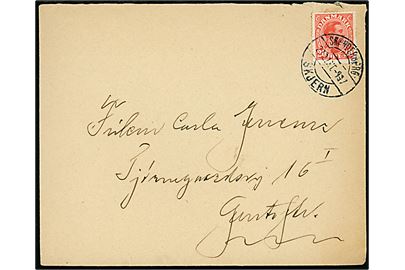 DANMARK
SKJERN
Frøken Carla Jensen
Tjørnegaardsvej 16 I
Gentofte.